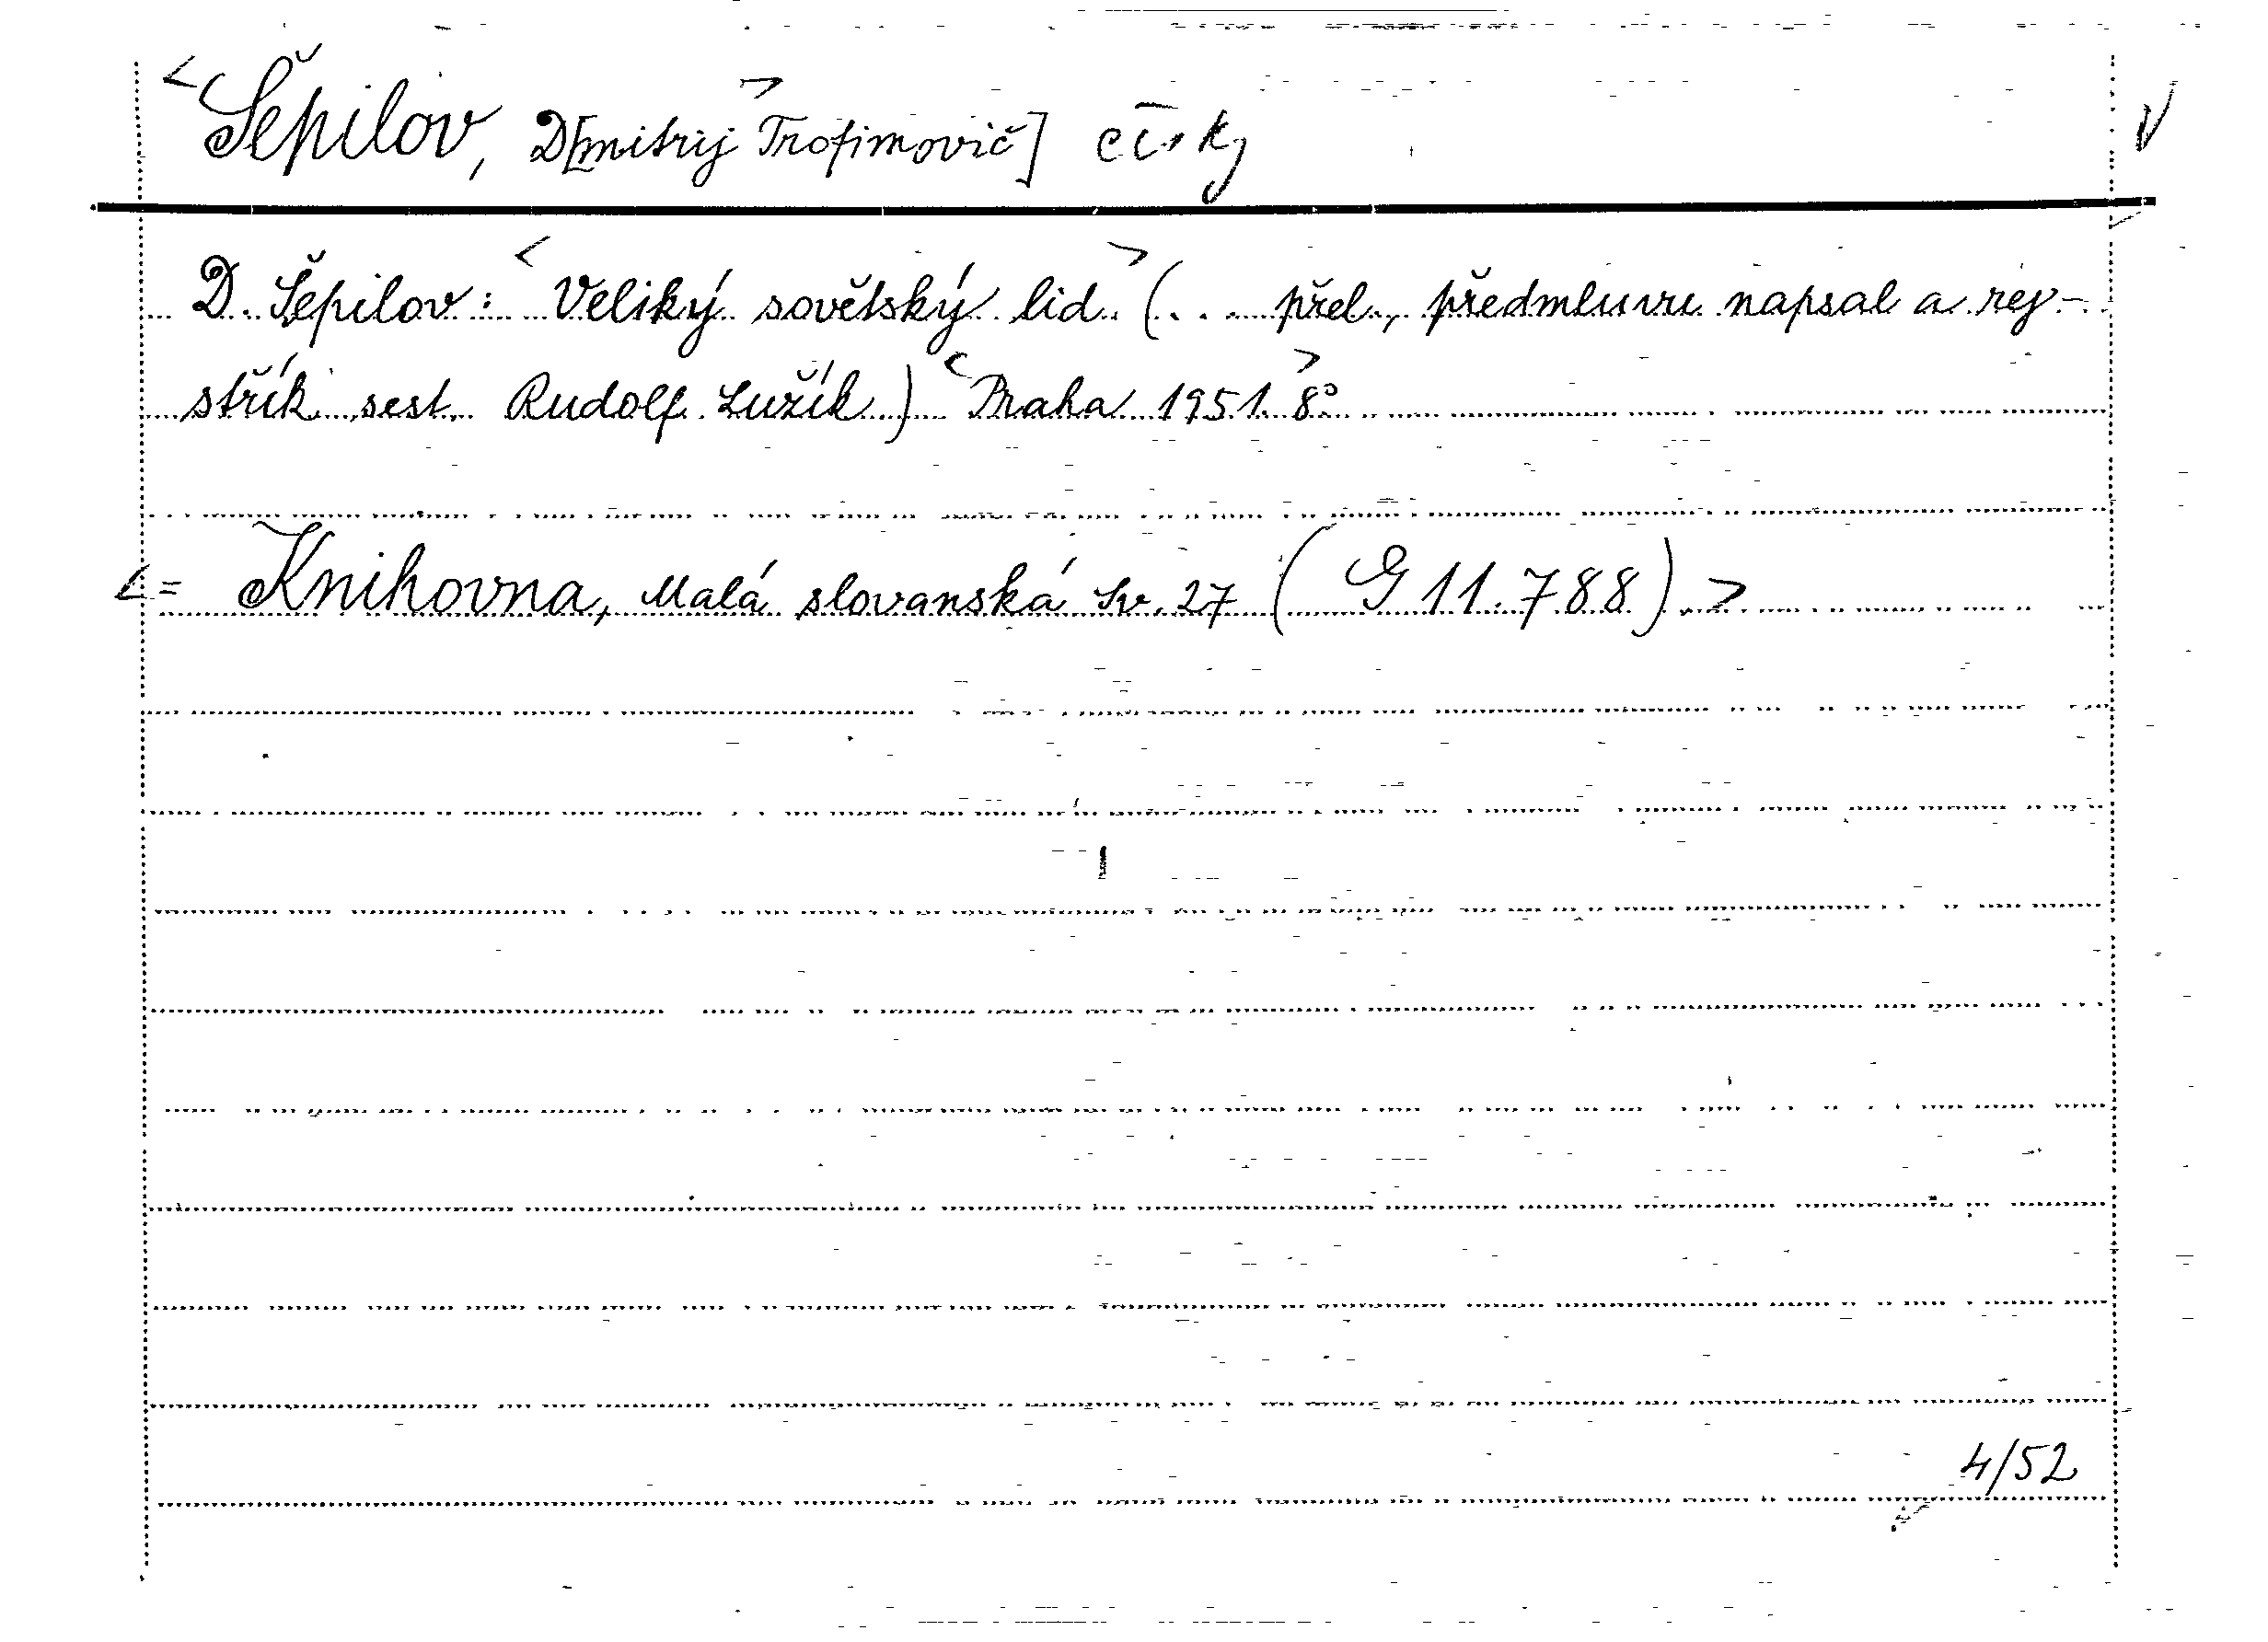 <Šepilov, D[mitrij Trofimovič]> česky V
D. Šepilov: <Veliký sovětský lid> (... přel., předmluvu napsal a rej-
střík sest. Rudolf Lužík) <Praha 1951. 8°>
<= Knihovna, Malá slovanská Sv. 27 (G 11.788).>
4/52